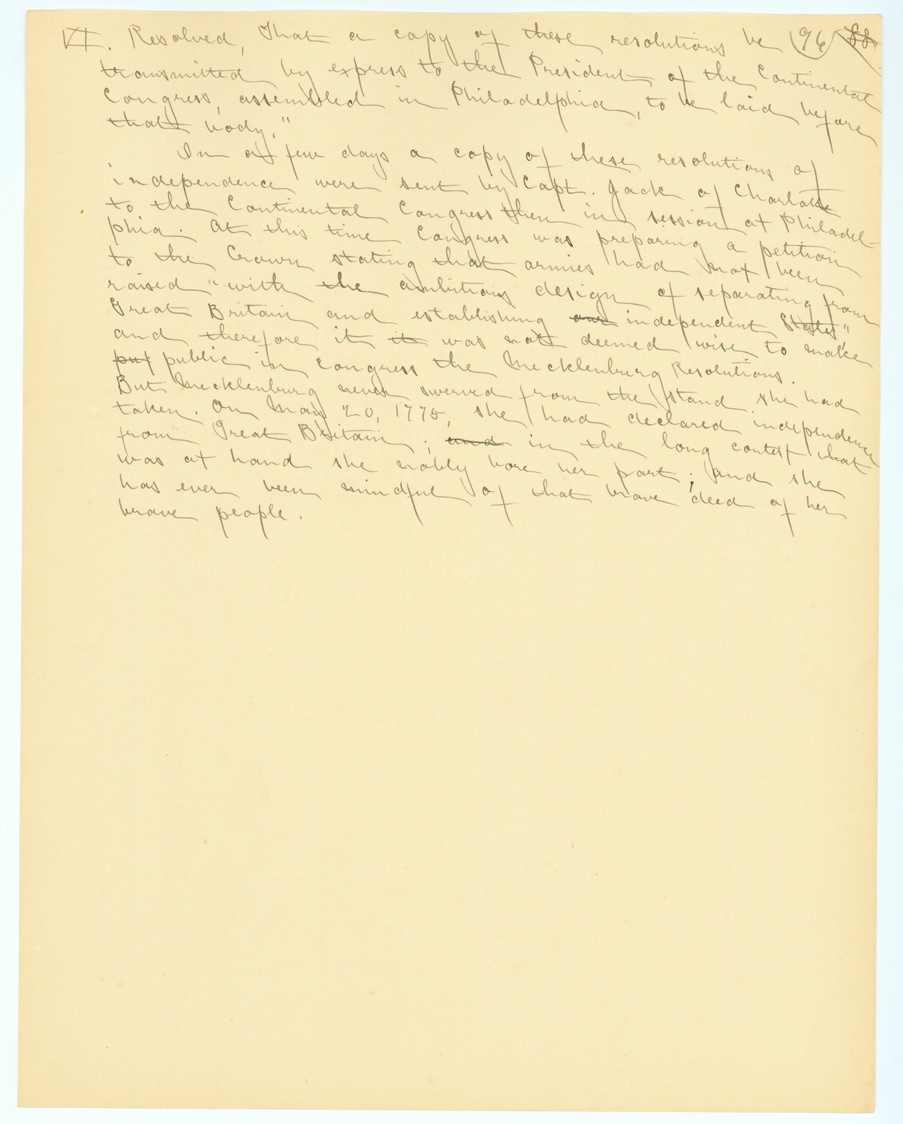 VI. Resolved, That a copy of these resolutions be 96
transmitted by express to the President of the Continental
Congress, assembled in Philadelphia, to be laid before
that body."
In a few days a copy of these resolutions of
independence were sent by Capt. Jack of Charlotte
to the Continental Congress then in session at Philadel-
phia. At this time Congress was preparing a petition
to the Crown stating that armies had not been
raised "with the ambitious design of separating from
Great Britain and establishing an independent States"
and therefore it is was not deemed wise to make
put public in Congress the Mecklenburg Resolutions.
But Mecklenburg never swerved from the stand she had
taken. On May 20, 1775, she had declared independence
from Great Britain; and in the long contest that
was at hand she nobly bore her part; and she
has ever been mindful of that brave deed of her
brave people.